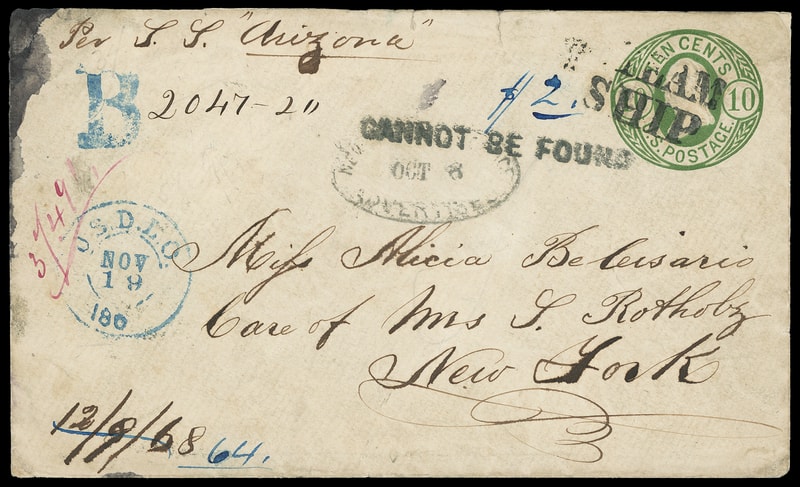 Per S. S. "Arizona"
B
2047-20
$2.
STEAM
SHIP
TEN CENTS
10
U.S. POSTAGE
CANNOT BE FOUND
OCT 8
ADVERTISED
3/49
U.S.D.L.O.
NOV
19
186
Miss Alicia Belisario
Care of Mrs S. Rotholz
New York
12/9/68
64.